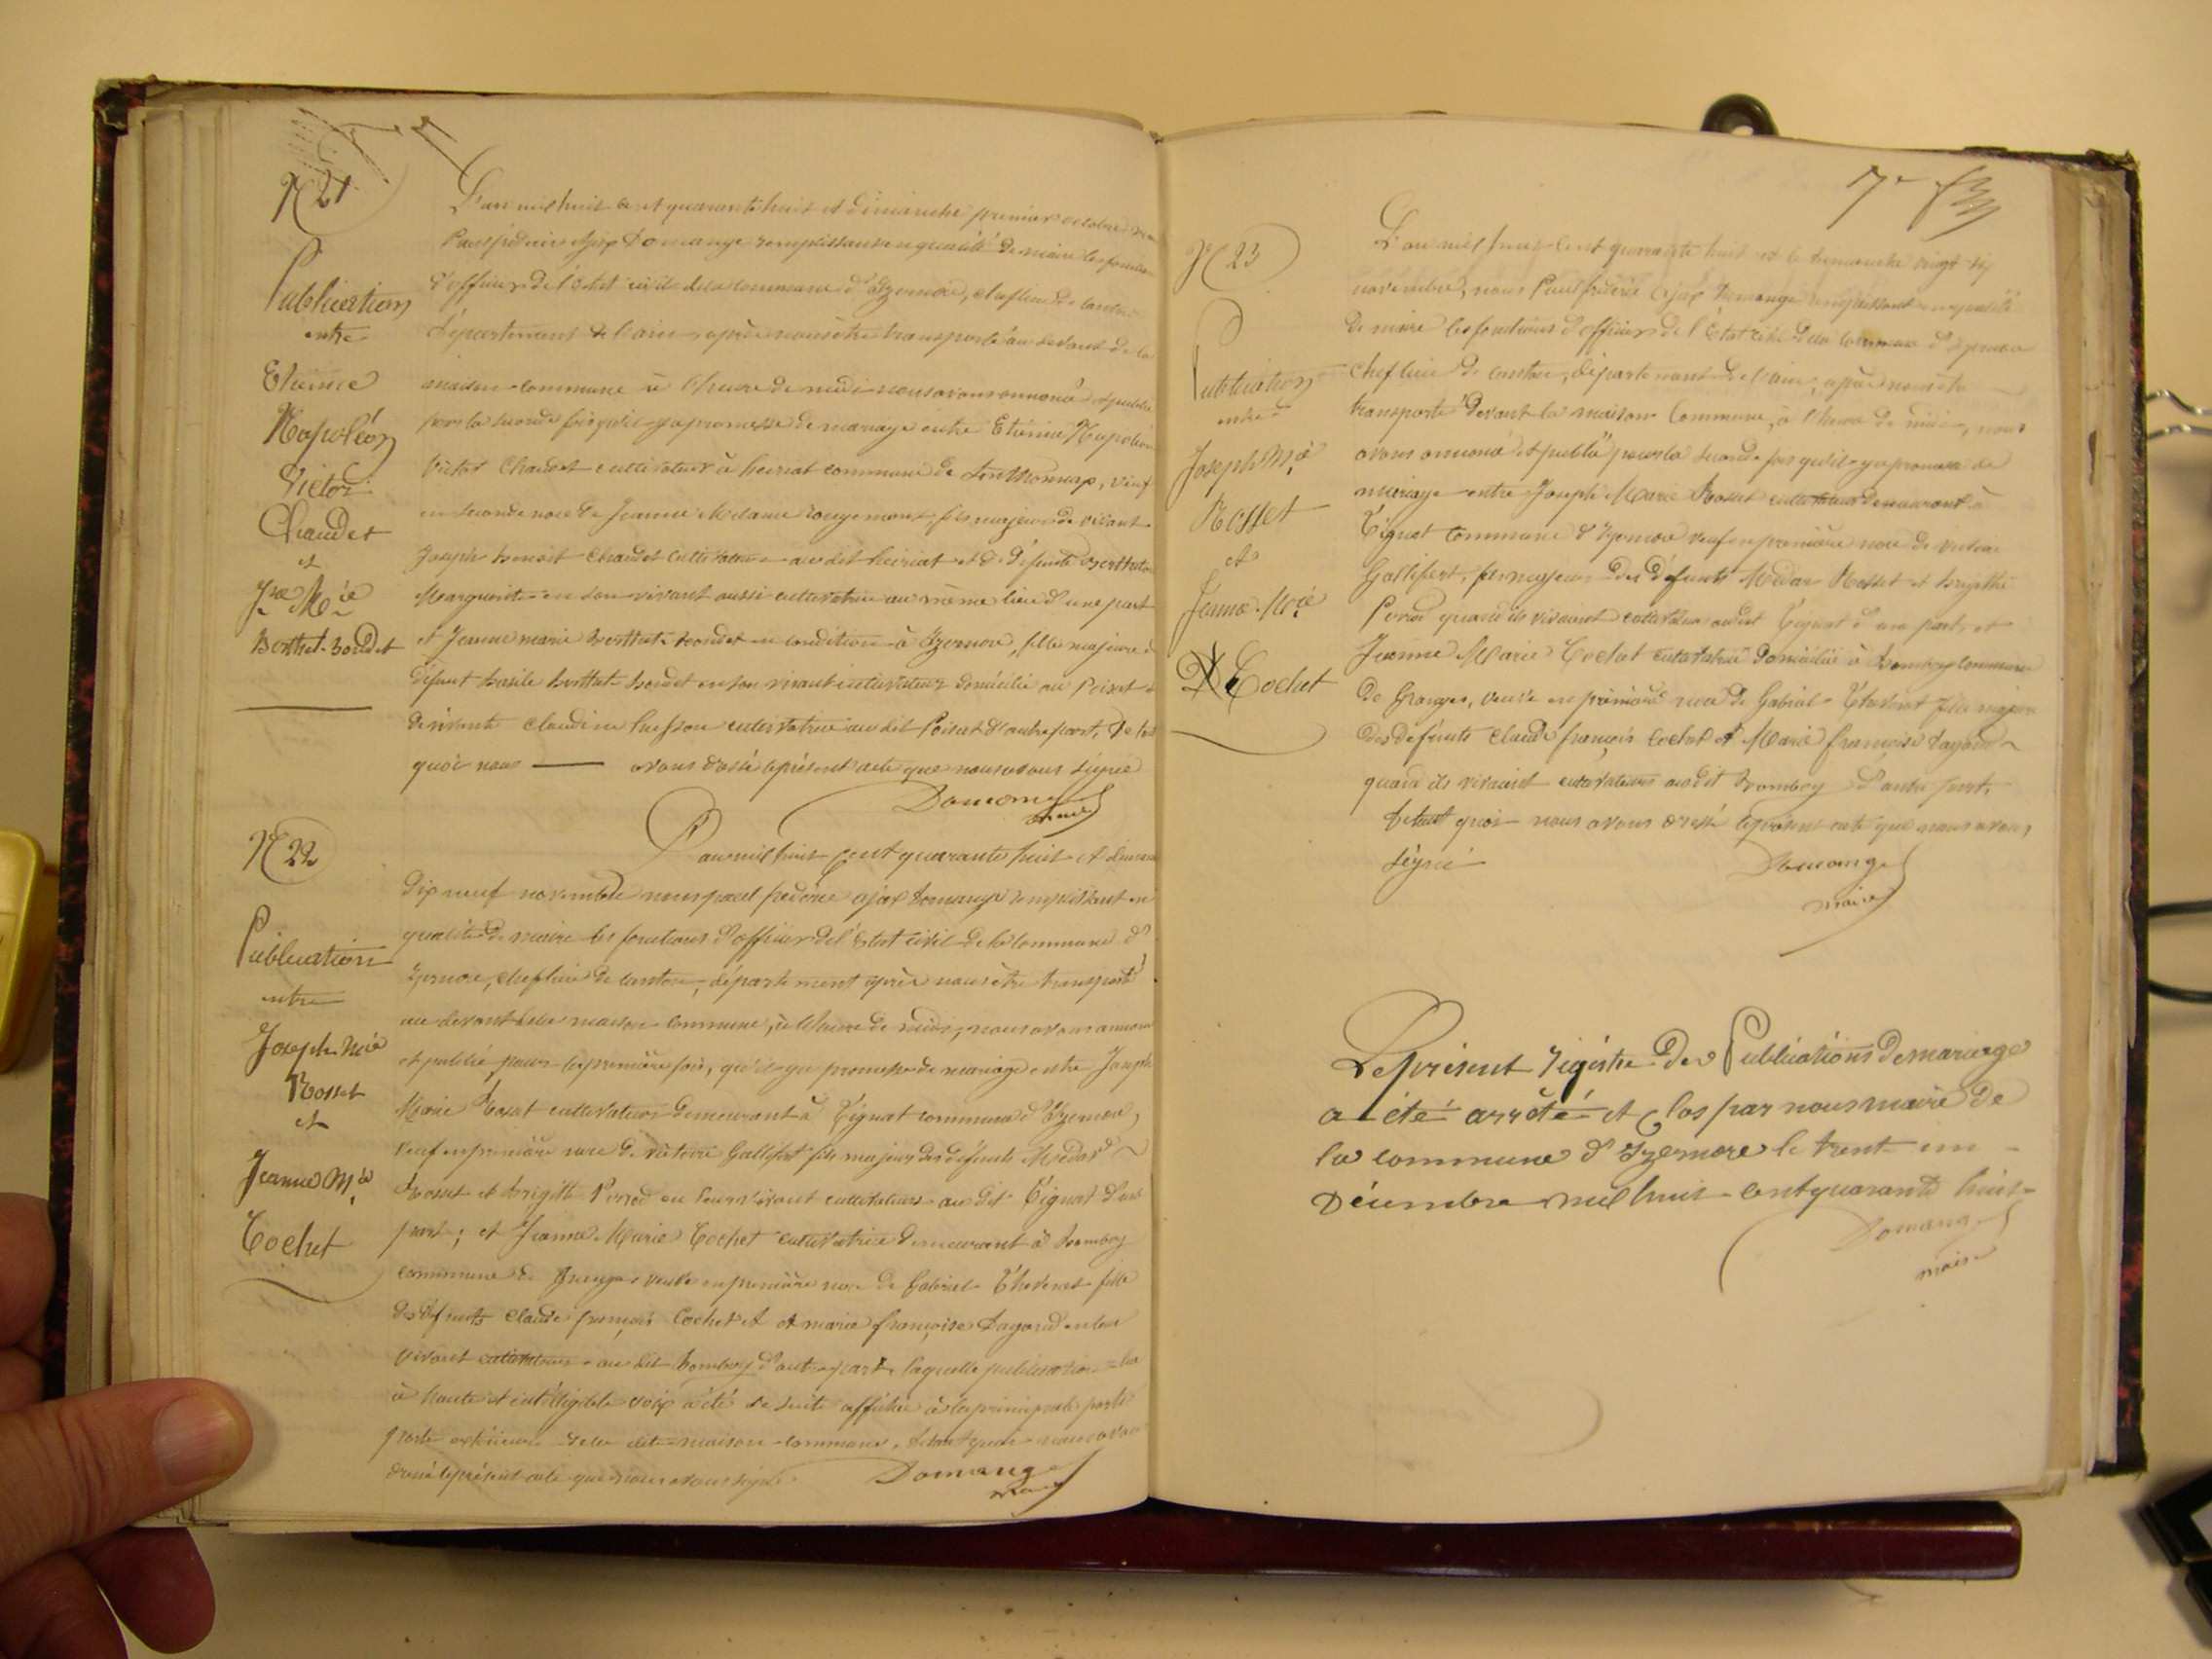 N 21
Publication
entre
Etienne
Napoléon
Victor
Chaudet
et
Jne Mie
Berthet-bondet
L'an mil huit cent quarante huit et dimanche premier octobre nous
Paul frédéric Ajax Domange remplissant en qualité de maire les fonctions
d'officier de l'état civil de la commune d'Izernore, chef lieu de canton
département de l'ain, après nous être transporté au devant de la
maison commune à l'heure de midi nous avons annoncé et publié
pour la seconde fois qu'il y a promesse de mariage entre Etienne Napoléon
Victor Chaudet cultivateur à heiriat commune de Sonthonnax, veuf
en seconde noce de Jeanne Mélanie rougemont fils majeur de vivant
Joseph benoit Chaudet cultivateur au dit heiriat et de défunte
Marguerite en son vivant aussi cultivatrice au même lieu d'une part
et Jeanne marie berthet-bondet en condition à Izernore, fille majeure de
défunt basile berthet-bondet en son vivant cultivateur domicilié au Poizat et
de vivante Claudine husson cultivatrice au dit Poizat d'autre part, de tout
quoi nous avons dressé le présent acte que nous avons signé
Domange
maire
N 22
Publication
entre
Joseph Mie
Rosset
et
Jeanne Mie
Cochet
L'an mil huit cent quarante huit et dimanche
dix neuf novembre nous paul frédéric ajax domange remplissant en
qualité de maire les fonctions d'officier de l'état civil de la commune d'
Izernore, chef lieu de canton, département après nous être transporté
au devant de la maison commune, à l'heure de midi, nous avons annoncé
et publié pour la première fois, qu'il y a promesse de mariage entre Joseph
Marie Rosset cultivateur demeurant à Tignat commune d'Izernore,
veuf en première noce de victoire Gallifet fils majeur des défunts Médar
Rosset et brigitte Perrod en leur vivant cultivateurs au dit Tignat d'une
part; et Jeanne Marie Cochet cultivatrice demeurant à bomboy
commune de Granges veuve en première noce de Gabriel Thevenet fille
des défunts Claude françois Cochet et et marie françoise Dagand en leur
vivant cultivateurs au dit bomboy d'autre part, laquelle publication lue
à haute et intelligible voix a été de suite affichée à la principale porte
porte extérieure de la dite maison commune, de tout quoi nous avons
dressé le présent acte que nous avons signé
Domange
maire
7e
N 23
Publication
entre
Joseph Mie
Rosset
et
Jeanne Mie
Cochet
L'an mil huit cent quarante huit et le dimanche vingt six
novembre, nous Paul frédéric Ajax Domange remplissant en qualité
de maire les fonctions d'officier de l'état civil de la commune d'Izernore
chef lieu de canton, département de l'ain, après nous être
transporté devant la maison commune, à l'heure de midi, nous
avons annoncé et publié pour la seconde fois qu'il y a promesse de
mariage entre Joseph Marie Rosset cultivateur demeurant à
Tignat commune d'Izernore veuf en première noce de victoire
Gallifet, fils majeur des défunts Médar Rosset et brigitte
Perrod quand ils vivaient cultivateurs au dit Tignat d'une part, et
Jeanne Marie Cochet cultivatrice domiciliée à bomboy commune
de Granges, veuve en première noce de Gabriel Thevenet fille majeure
des défunts Claude françois Cochet et Marie françoise Dagand
quand ils vivaient cultivateurs au dit bomboy d'autre part,
de tout quoi nous avons dressé le présent acte que nous avons
signé
Domange
maire
Le présent régistre des Publications de mariage
a été arrêté et clos par nous maire de
la commune d'Izernore le trent un
Décembre mil huit cent quarante huit
Domange
maire